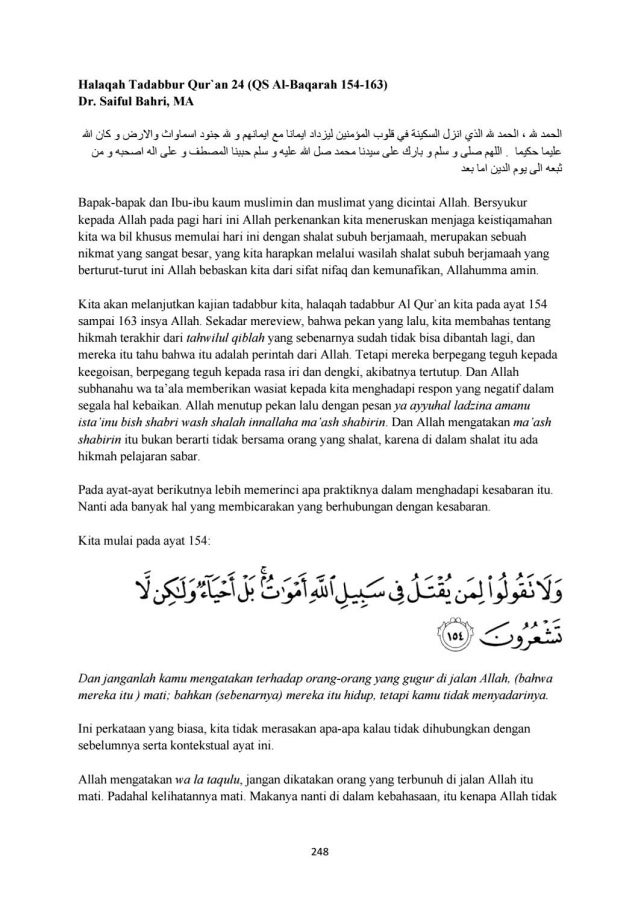 Halaqah Tadabbur Qur`an 24 (QS Al-Baqarah 154-163)
Dr. Saiful Bahri, MA
الحمد لله ، الحمد لله الذي انزل السكينة في قلوب المؤمنين ليزداد ايمانا مع ايمانهم و لله جنود اسماواث والارض و كان الله
عليما حكيما . اللهم صلى و سلم و بارك على سيدنا محمد صل الله عليه و سلم حبيبنا المصطف و على اله اصحبه و من
ثبعه الى يوم الدين اما بعد
Bapak-bapak dan Ibu-ibu kaum muslimin dan muslimat yang dicintai Allah. Bersyukur
kepada Allah pada pagi hari ini Allah perkenankan kita meneruskan menjaga keistiqamahan
kita wa bil khusus memulai hari ini dengan shalat subuh berjamaah, merupakan sebuah
nikmat yang sangat besar, yang kita harapkan melalui wasilah shalat subuh berjamaah yang
berturut-turut ini Allah bebaskan kita dari sifat nifaq dan kemunafikan, Allahumma amin.
Kita akan melanjutkan kajian tadabbur kita, halaqah tadabbur Al Qur`an kita pada ayat 154
sampai 163 insya Allah. Sekadar mereview, bahwa pekan yang lalu, kita membahas tentang
hikmah terakhir dari tahwilul qiblah yang sebenarnya sudah tidak bisa dibantah lagi, dan
mereka itu tahu bahwa itu adalah perintah dari Allah. Tetapi mereka berpegang teguh kepada
keegoisan, berpegang teguh kepada rasa iri dan dengki, akibatnya tertutup. Dan Allah
subhanahu wa ta’ala memberikan wasiat kepada kita menghadapi respon yang negatif dalam
segala hal kebaikan. Allah menutup pekan lalu dengan pesan ya ayyuhal ladzina amanu
ista’inu bish shabri wash shalah innallaha ma’ash shabirin. Dan Allah mengatakan ma’ash
shabirin itu bukan berarti tidak bersama orang yang shalat, karena di dalam shalat itu ada
hikmah pelajaran sabar.
Pada ayat-ayat berikutnya lebih memerinci apa praktiknya dalam menghadapi kesabaran itu.
Nanti ada banyak hal yang membicarakan yang berhubungan dengan kesabaran.
Kita mulai pada ayat 154:
وَلَا تَقُولُوا۟ لِمَن يُقْتَلُ فِى سَبِيلِ ٱللَّهِ أَمْوَٰتٌۢ ۚ بَلْ أَحْيَآءٌ وَلَٰكِن لَّا
تَشْعُرُونَ ١٥٤
Dan janganlah kamu mengatakan terhadap orang-orang yang gugur di jalan Allah, (bahwa
mereka itu ) mati; bahkan (sebenarnya) mereka itu hidup, tetapi kamu tidak menyadarinya.
Ini perkataan yang biasa, kita tidak merasakan apa-apa kalau tidak dihubungkan dengan
sebelumnya serta kontekstual ayat ini.
Allah mengatakan wa la taqulu, jangan dikatakan orang yang terbunuh di jalan Allah itu
mati. Padahal kelihatannya mati. Makanya nanti di dalam kebahasaan, itu kenapa Allah tidak
248